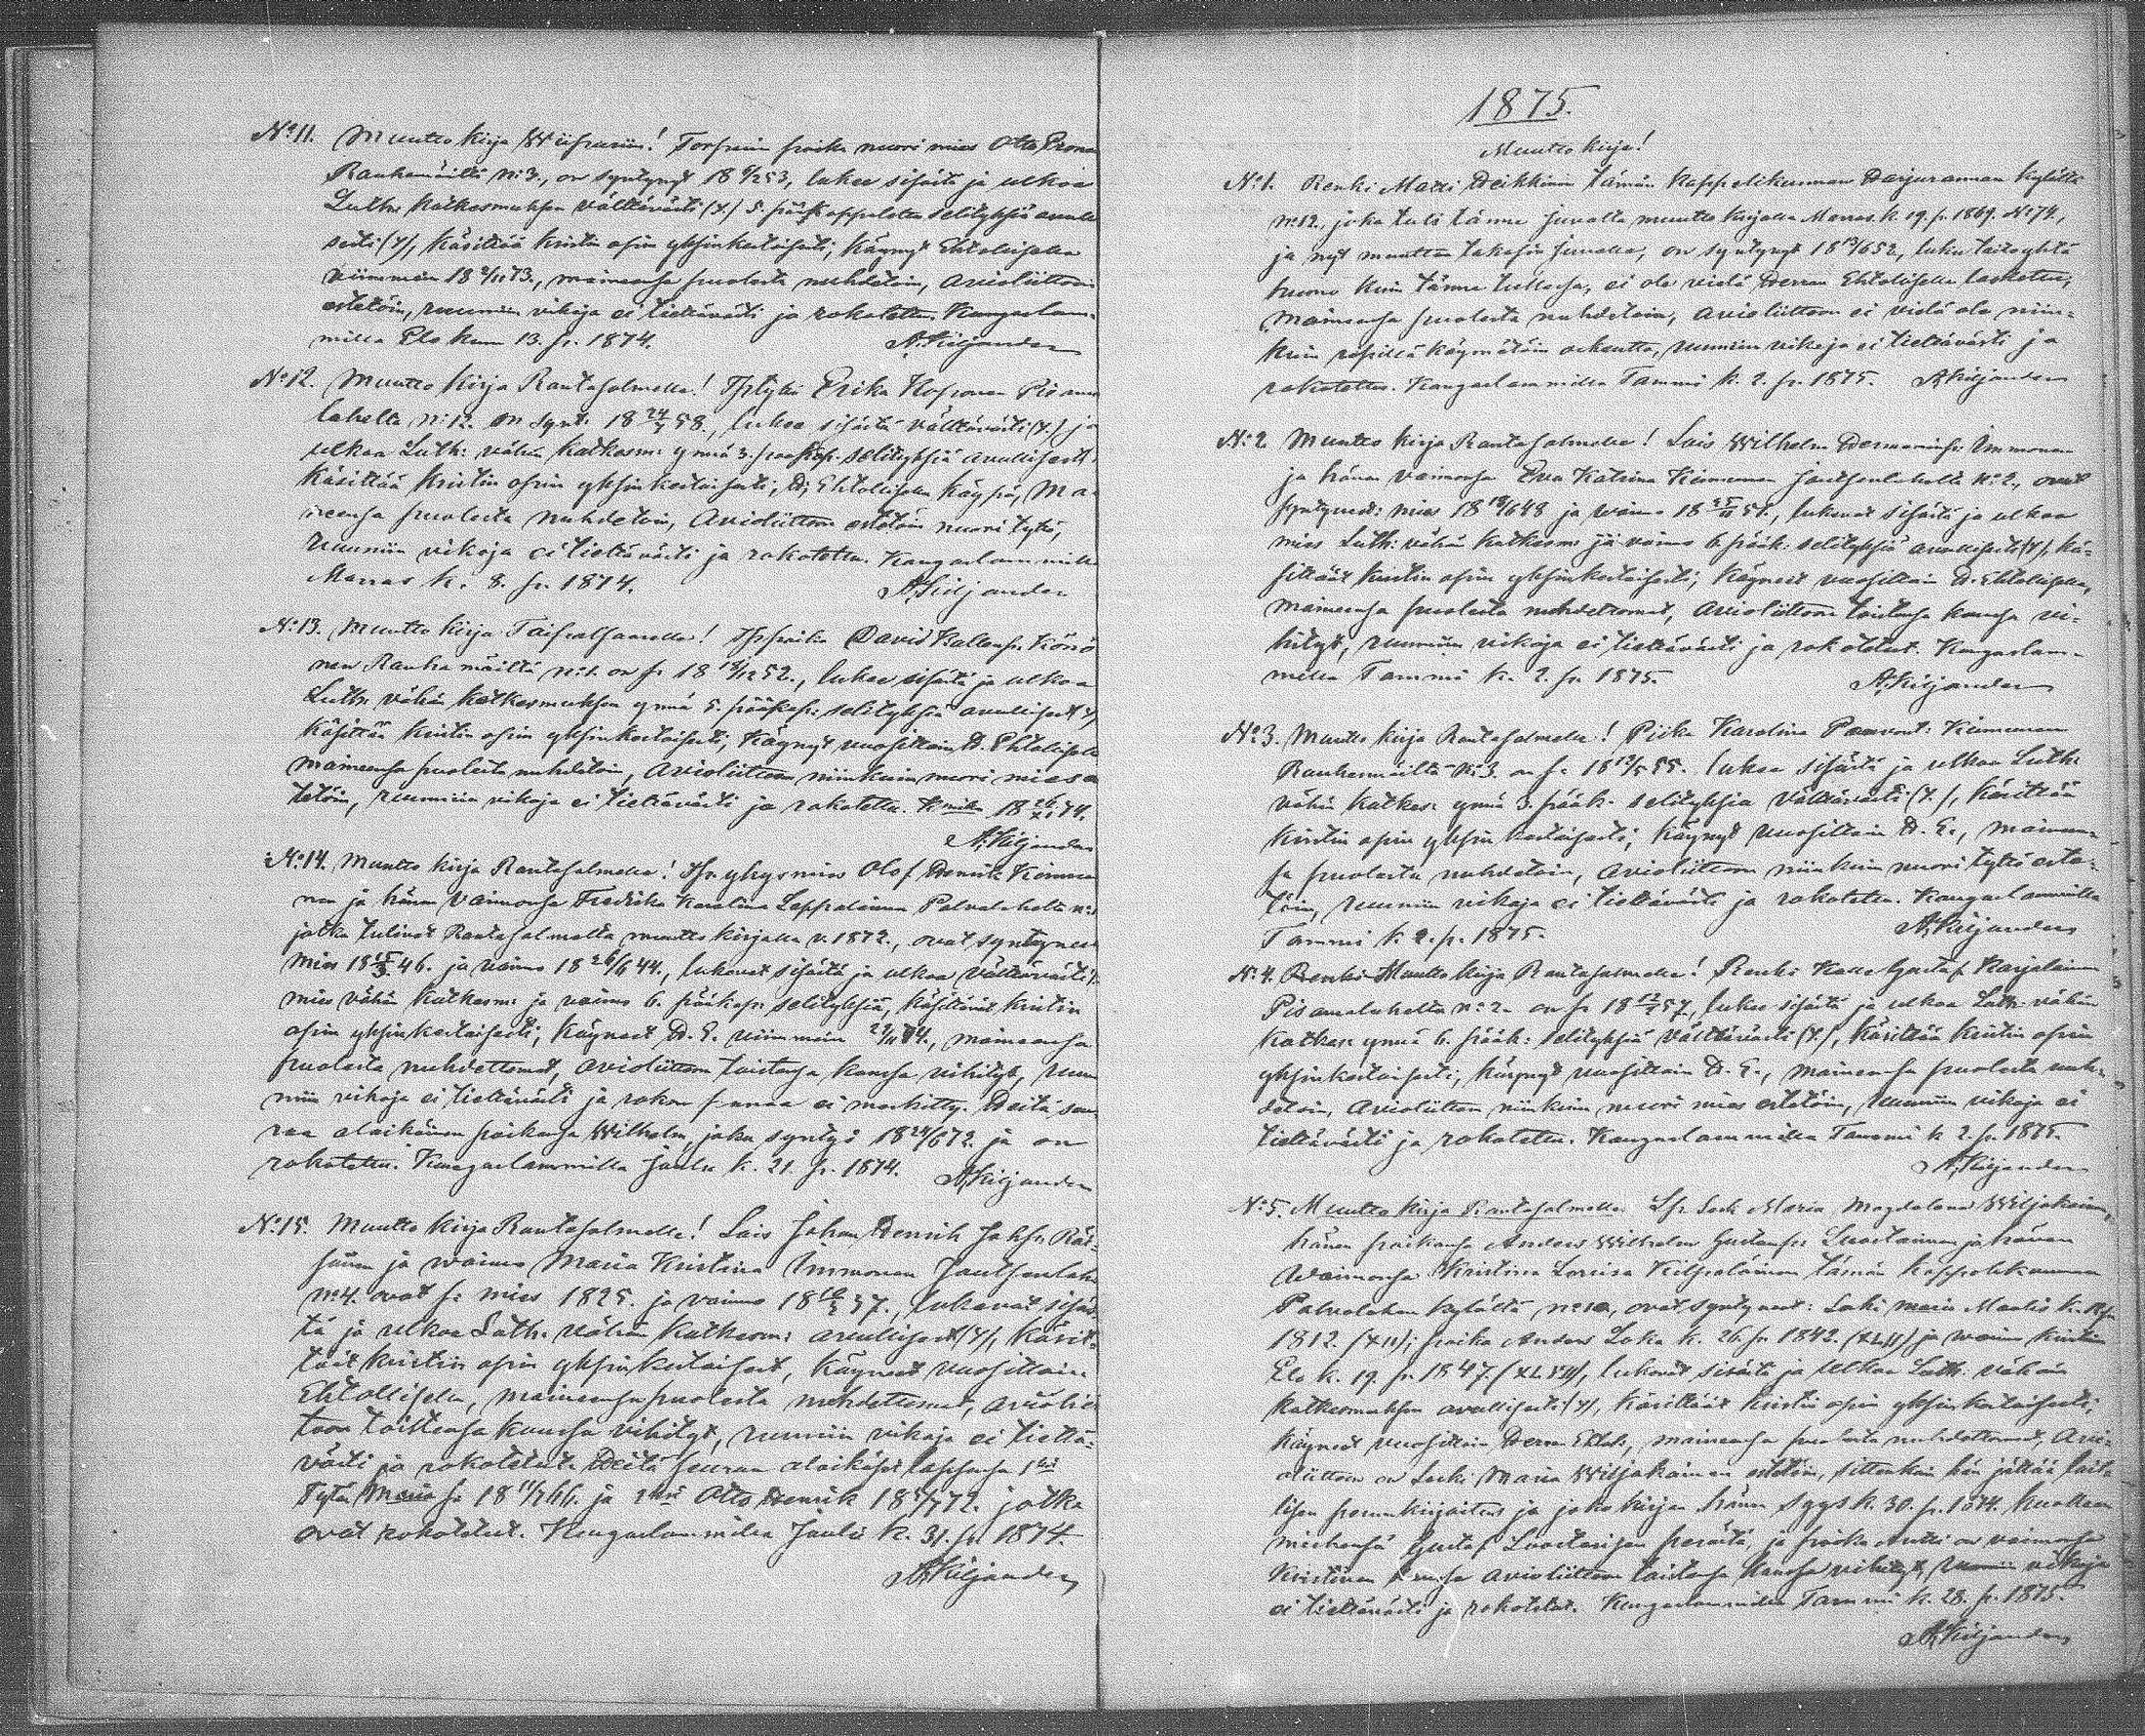 No 11. Muutto kirja Wiipuriin! Torpparin poika nuori mies Otto
Rauhamäiltä N:3., on syntynyt 18 6/12 53, lukee sisältä ja ulkoa
Luth: katkesmuksen välttävästi (+) 5. pääkappaletten selityksiä avulli
sesti (+), käsittää kristin opin yksinkertaisesti, käynyt Ehtoollisella
viimmein 18 2/11 73., maineensa puolesta nuhdetoin, avioliittoon
estetöin, ruumiin vikoja ei tiettävästi ja rokotettu. Kangaslam-
milla Elo kuun 13. p. 1874. A. Kiljander
No 12. Muutto kirja Rantasalmelle! Erika Kosonen Pisama
lahelta N:12. on synt. 18 24/ 58., lukee sisältä välttävästi (+) ja
ulkoa Luth: vähän katkesm: ynnä 3. pääkap. selityksiä avullisesti,
käsittää kristin opin yksinkertaisesti, H. Ehtoollisella käypä, Mai-
neensa puolesta nuhdetoin, Avioliittoon estetöin nuori tyttö,
ruumiin vikoja ei tiettävästi ja rokotettu. Kangaslammilla
Marras k. 8. p. 1874. A. Kiljander
No 13. Muutto kirja Taipalsaarelle! David Kallenp. Könö
nen Rauhamäiltä N:1. on s. 18 18/12 52., lukee sisältä ja ulkoa
Luth: vähän katkesmuksen ynnä 5. pääkap: selityksiä avullisesti (+)
käsittää kristin opin yksinkertaisesti, käynyt vuosittain H. Ehtoollisella
maineensa puolesta nuhdetoin, avioliittoon niinkuin nuori mies es
tetöin, ruumiin vikoja ei tiettävästi ja rokotettu. K:milla 18 26/XI 74.
A. Kiljander
No 14. Muutto kirja Rantasalmelle! Itsp. yhysmies Olof Henrik Kinnu
nen ja hänen vaimonsa Fredrika Karolina Lappalainen Palvalahelta N:1
jotka tulivat Rantasalmelta muutto kirjalla v. 1872., ovat syntyneet
mies 18 15/3 46. ja vaimo 18 26/6 44., lukevat sisältä ja ulkoa välttävästi
mies vähän katkesm: ja vaimo 6. pääkap. selityksiä, käsittävät kristin
opin yksinkertaisesti, käyneet H. E. viimmein 29/11 74., maineensa
puolesta nuhdettomat, avioliittoon toistensa kanssa vihityt, ruu
miin vikoja ei tiettävästi ja rokon panoa ei merkitty. Heitä seu
raa alaikäinen poikansa Wilhelm, joka syntyi 18 24/6 72. ja on
rokotettu. Kangaslammilla Joulu k. 21. p. 1874. A. Kiljander
No 15. Muutto kirja Rantasalmelle! Lois Johan Henrik Johp. Räi-
sänen ja waimo Maria Kristina Immonen Jautsenlahe
N:4. ovat s. mies 1825. ja vaimo 18 10/3 37., lukevat sisäl-
tä ja ulkoa Luth. vähän katkesm: avullisest (+), käsit-
tävät kristin opin yksinkertaisest, käyneet vuosittain
Ehtoollisella, maineensa puolesta nuhdettomat, avioliit
toon toistensa kanssa vihityt, ruumiin vikoja ei tiettä-
västi ja rokotetut. Heitä seuraa alaikäset lapsensa 1ksi
Tytär Maria s. 18 11/7 66. ja 2ksi Otto Henrik 18 5/7 72. jotka
ovat rokotetut. Kangaslammilla Joulu k. 31. p. 1874.
A. Kiljander
1875.
Muutto kirja!
No 1. Renki Matti Heikkinen tämän kappelikunnan Harjurannan kylältä
N:12., joka tuli tänne Juvalta muutto kirjalla Marras. k. 19. p. 1869. No 74.,
ja nyt muuttaa takasin Juvalle, on syntynyt 18 13/6 52, luku taito yhtä
huono kuin tänne tullessa, ei ole vielä Herran Ehtoolliselle laskettu,
maineensa puolesta nuhdetoin, avioliittoon ei vielä ole niin-
kuin ripillä käymätöin oikeutta, ruumiin vikoja ei tiettävästi ja
rokotettu. Kangaslammilla Tammi k. 2. p. 1875. A. Kiljander
No 2. Muutto kirja Rantasalmelle! Lois Wilhelm Hermaninp. Immonen
ja hänen vaimonsa Eva Katrina Kinnunen Jautsenlahelta N:2., ovat
syntyneet: mies 18 18/6 48 ja vaimo 18 25/ 51., lukevat sisältä ja ulkoa
mies Luth: vähän katkesm: ja vaimo 6. pääk: selityksiä avullisesti (+), kä-
sittävät kristin opin yksinkertaisesti, käyneet vuosittain H. Ehtoollisella,
maineensa puolesta nuhdettomat, avioliittoon toistensa kanssa vi-
hityt, ruumiin vikoja ei tiettävästi ja rokotetut. Kangaslam-
milla Tammi k. 2. p. 1875. A. Kiljander
No 3. Muutto kirja Rantasalmelle! Piika Karolina Paavont: Kinnunen
Rauhamäiltä N:3 on s. 18 12/5 55. lukee sisältä ja ulkoa Luth:
vähän katkes: ynnä 3. pääk. selityksiä välttävästi (+), käsittää
kristin opin yksinkertaisesti, käynyt vuosittain H. E., maineen-
sa puolesta nuhdetoin, avioliittoon niinkuin nuori tyttö este-
töin, ruumiin vikoja ei tiettävästi ja rokotettu. Kangaslammilla
Tammi k. 2. p. 1875. A. Kiljander
No 4. Renki Muutto kirja Rantasalmelle! Renki Kalle Gustaf Karjalainen
Pisamalahelta N:2 on s. 18 12/ 57, lukee sisältä ja ulkoa Luth. vähän
katkes: ynnä 6. pääk: selityksiä välttävästi (+), käsittää kristin opin
yksinkertaisesti, käynyt vuosittain H. E., maineensa puolesta nuh-
detoin, avioliittoon niinkuin nuori mies estetöin, ruumiin vikoja ei
tiettävästi ja rokotettu. Kangaslammilla Tammi k. 2. p. 1875.
A. Kiljander
No 5. Muutto kirja Rantasalmelle Leski Maria Magdalena Wiljakainen,
hänen poikansa Anders Wilhelm Gustafsp: Luostarinen ja hänen
Waimonsa Kristina Lovisa Kilpeläinen tämän kappelikunnan
Palvalahen kylältä N:10, ovat syntyneet: Leski Maria Maalis k.
1812. (XII); poika Anders Loka k. 26. p. 1842. (XLII) ja waimo Kristin
Elo k. 19. p. 1847. (XLVII), lukevat sisältä ja ulkoa Luth. vähän
katkesmuksen avullisesti (+), käsittävät kristin opin yksinkertaisesti,
käyneet vuosittain Herran Ehtool:, maineensa puolesta nuhdettomat, Avi-
oliittoon on Leski Maria Wiljakainen estetöin, sittenkuin hän jättää lail-
lisen perunkirjoituksen ja jako kirjan hänen Syys k. 30. p. 1874. kuolleen
miehensä Gustaf Luostarisen perästä, ja poika Antti on vaimonsa
Kristinan kanssa avioliittoon toistensa kanssa vihityt, Ruumiin vikoja
ei tiettävästi ja rokotetut. Kangaslammilla Tammi k. 28. p. 1875.
A. Kiljander